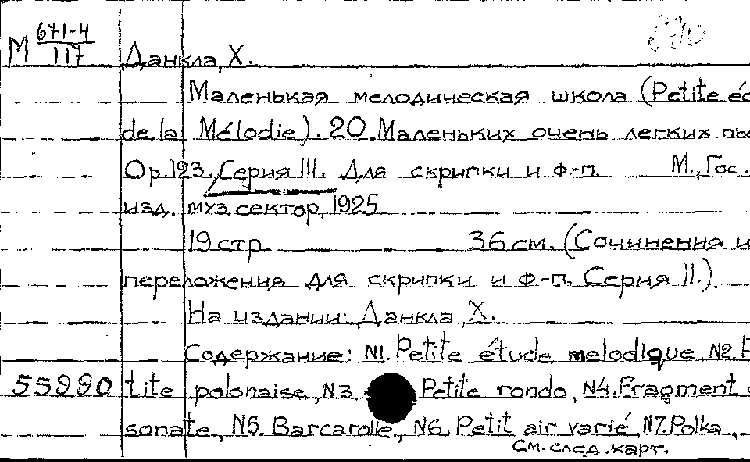 М 671-4
117
Данкла, Х.
Маленькая мелодическая школа (Petite éc
de la Mélodie). 20 Маленьких очень легких пь
Op. 123. Серия III. Для скрипки и ф-п. М., Гос.
изд. муз. сектор, 1925
19 стр. 36 см. (Сочинения и
переложения для скрипки и ф-п. Серия II.)
На издании: Данкла, Х.
Содержание: N1. Petite étude melodique N2. P
55990 tite polonaise, N3. Petite rondo, N4. Fragment
sonate, N5. Barcarolle, N6. Petit air varié, N7. Polka
См. след. карт.